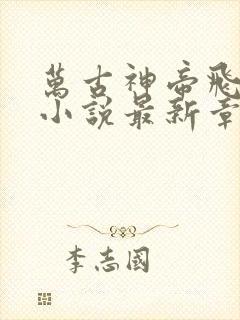 萬古神帝飛
小説最新章
李志國